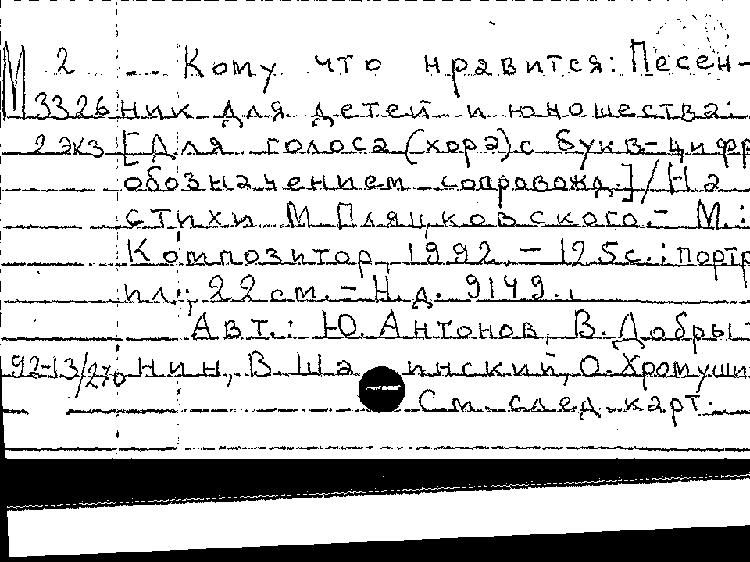 М 2 ... Кому что нравится: Песен-
3326 ник для детей и юношества:
2 экз [Для голоса (хора) с букв-цифр
обозначением сопровожд.] / На
стихи М Пляцковского. - М.:
Композитор, 1992. - 125с.: портр
ил.; 22 см. - Н.д. 9149.
Авт.: Ю. Антонов, В. Добры-
92-13/270 нин, В. Ша инский, О. Хромуши
См. след. карт.